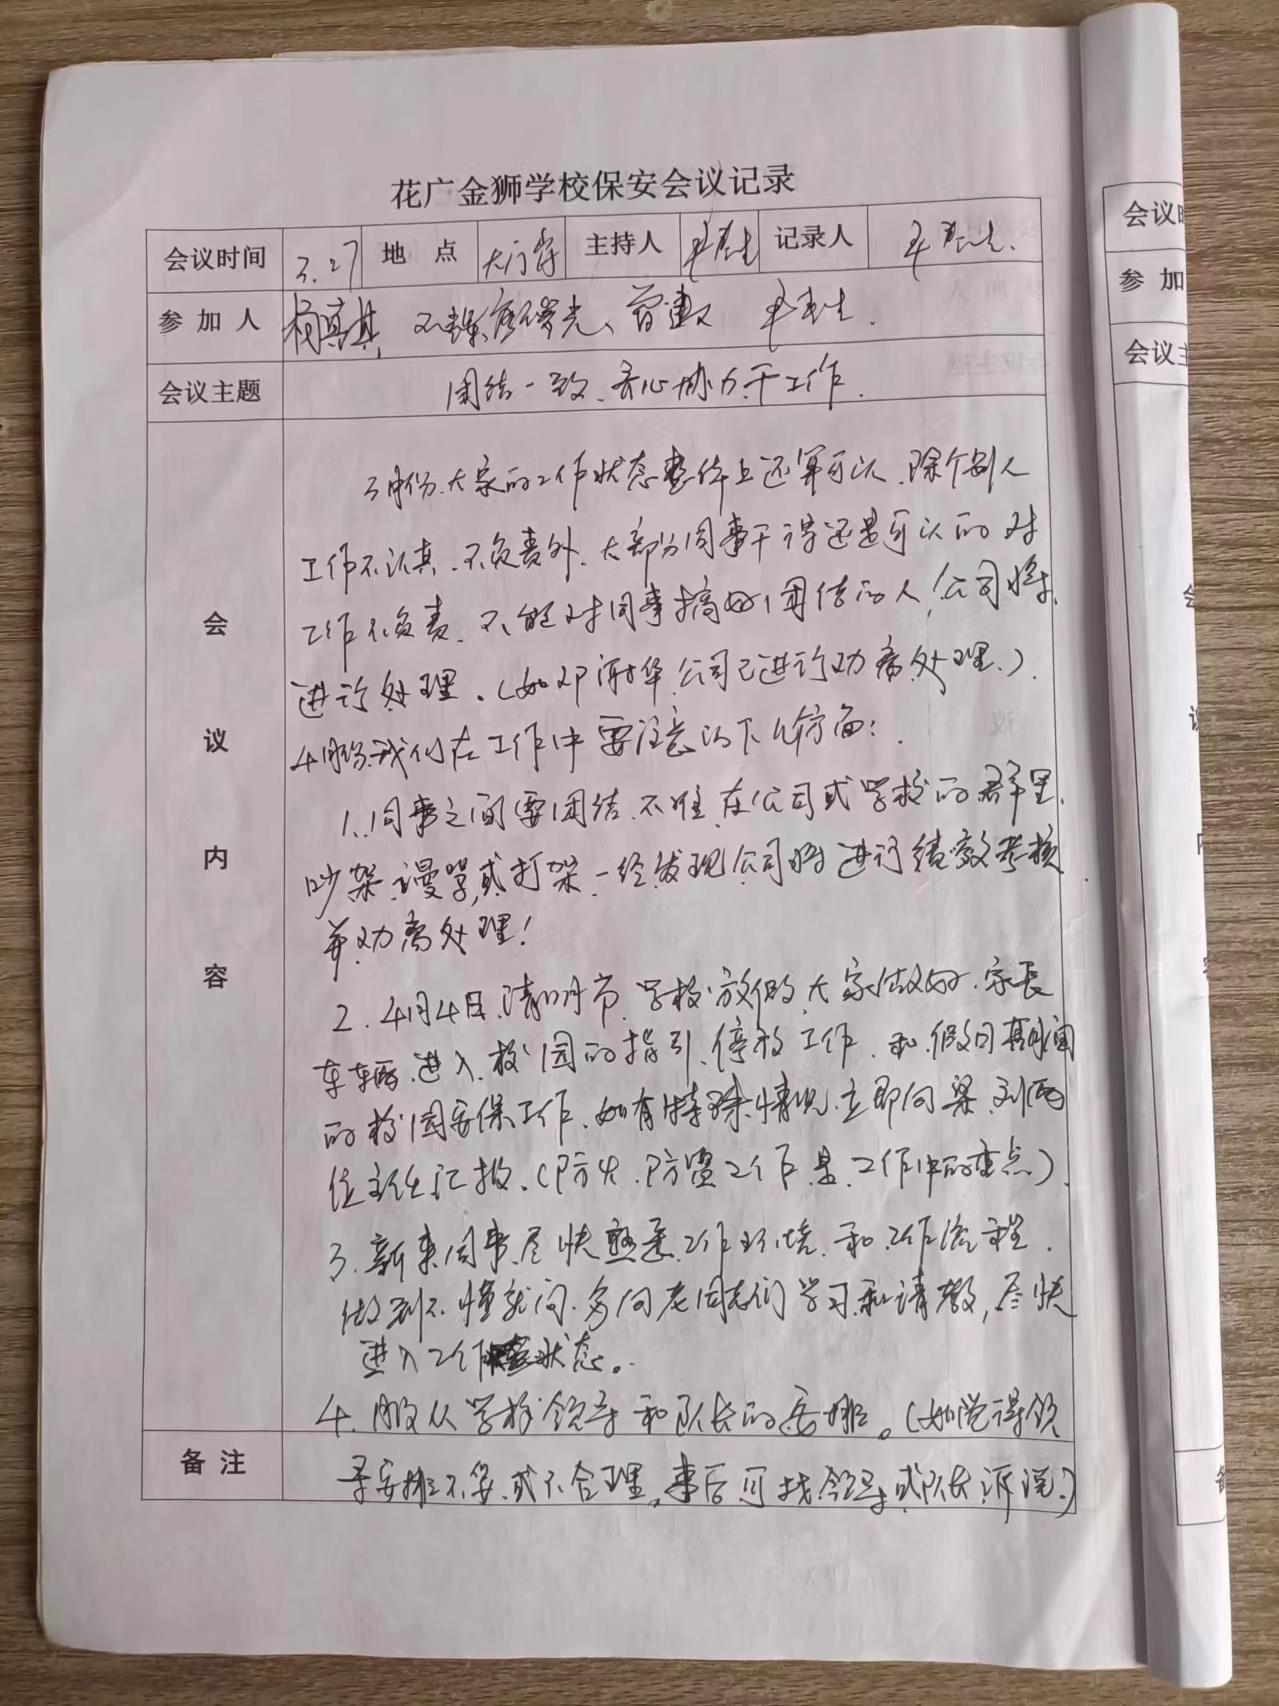 花广金狮学校保安会议记录
会议时间 3.27 地点 大门岗 主持人 记录人
参加人 杨真其、
会议主题 团结一致、齐心协力干工作.
会议内容
3月份、大家的工作状态整体上还算可以、除个别人
工作不认真、不负责外、大部分同事干得还是可以的 对
工作不负责、不能对同事搞好团结的人,公司将
进行处理。(如邓 华 公司已进行劝离处理.)
4月份我们在工作中要注意以下几个方面:
1、同事之间要团结、不准在公司或学校的群里、
吵架、谩骂或打架、一经发现公司将进行绩效考核
并劝离处理!
2.4月4日、清明节、学校放假、大家做好、家长
车辆、进入校园的指引、停放工作、和假日期间
的校园安保工作、如有特殊情况、立即向梁、刘两
位主任汇报。(防火、防盗工作是、工作中的重点)
3、新来同事、尽快熟悉工作环境、和工作流程、
做到不懂就问、多向老同志们学习和请教,尽快
进入工作状态。
4、服从学校领导和队长的安排。(如觉得领
备注
导安排不妥、或不合理、事后可找领导或队长诉说.)
会议时
参加
会议主
会
议
内
容
备